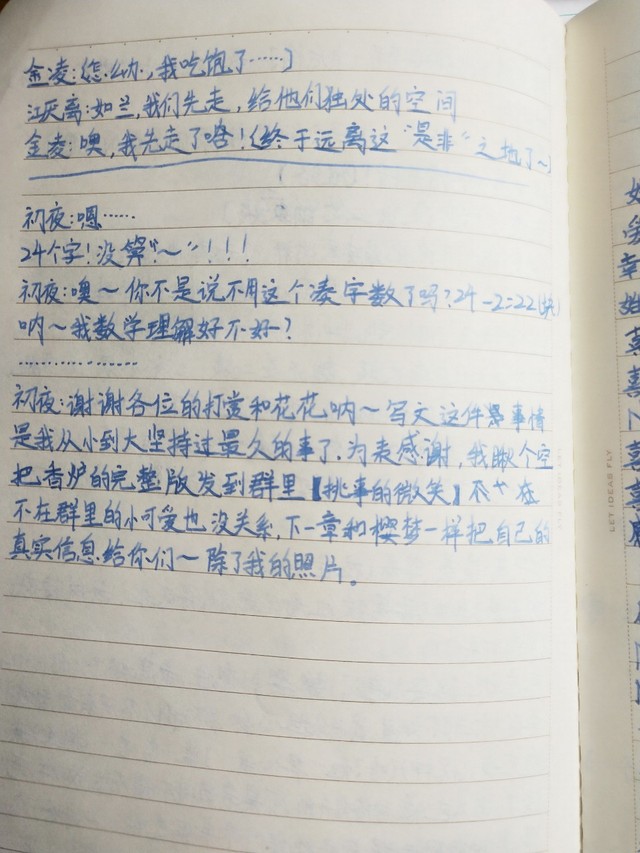 金凌:(怎么办,我吃饱了……)
江厌离:如兰,我们先走,给他们独处的空间
金凌:噢,我先走了哈!(终于远离这“是非”之地了~)
初夜:嗯……
24个字!没算“~”!!!
初夜:噢~你不是说不用这个凑字数了吗?24-2=22(块)
呐~我数学理解好不好?
………………
初夜:谢谢各位的打赏和花花呐~写文这件事情
是我从小到大坚持过最久的事了.为表感谢,我瞅个空
把香炉的完整版发到群里【挑事的微笑】不
不在群里的小可爱也没关系,下一章和樱梦一样把自己的
真实信息给你们~除了我的照片。
LET IDEAS FLY